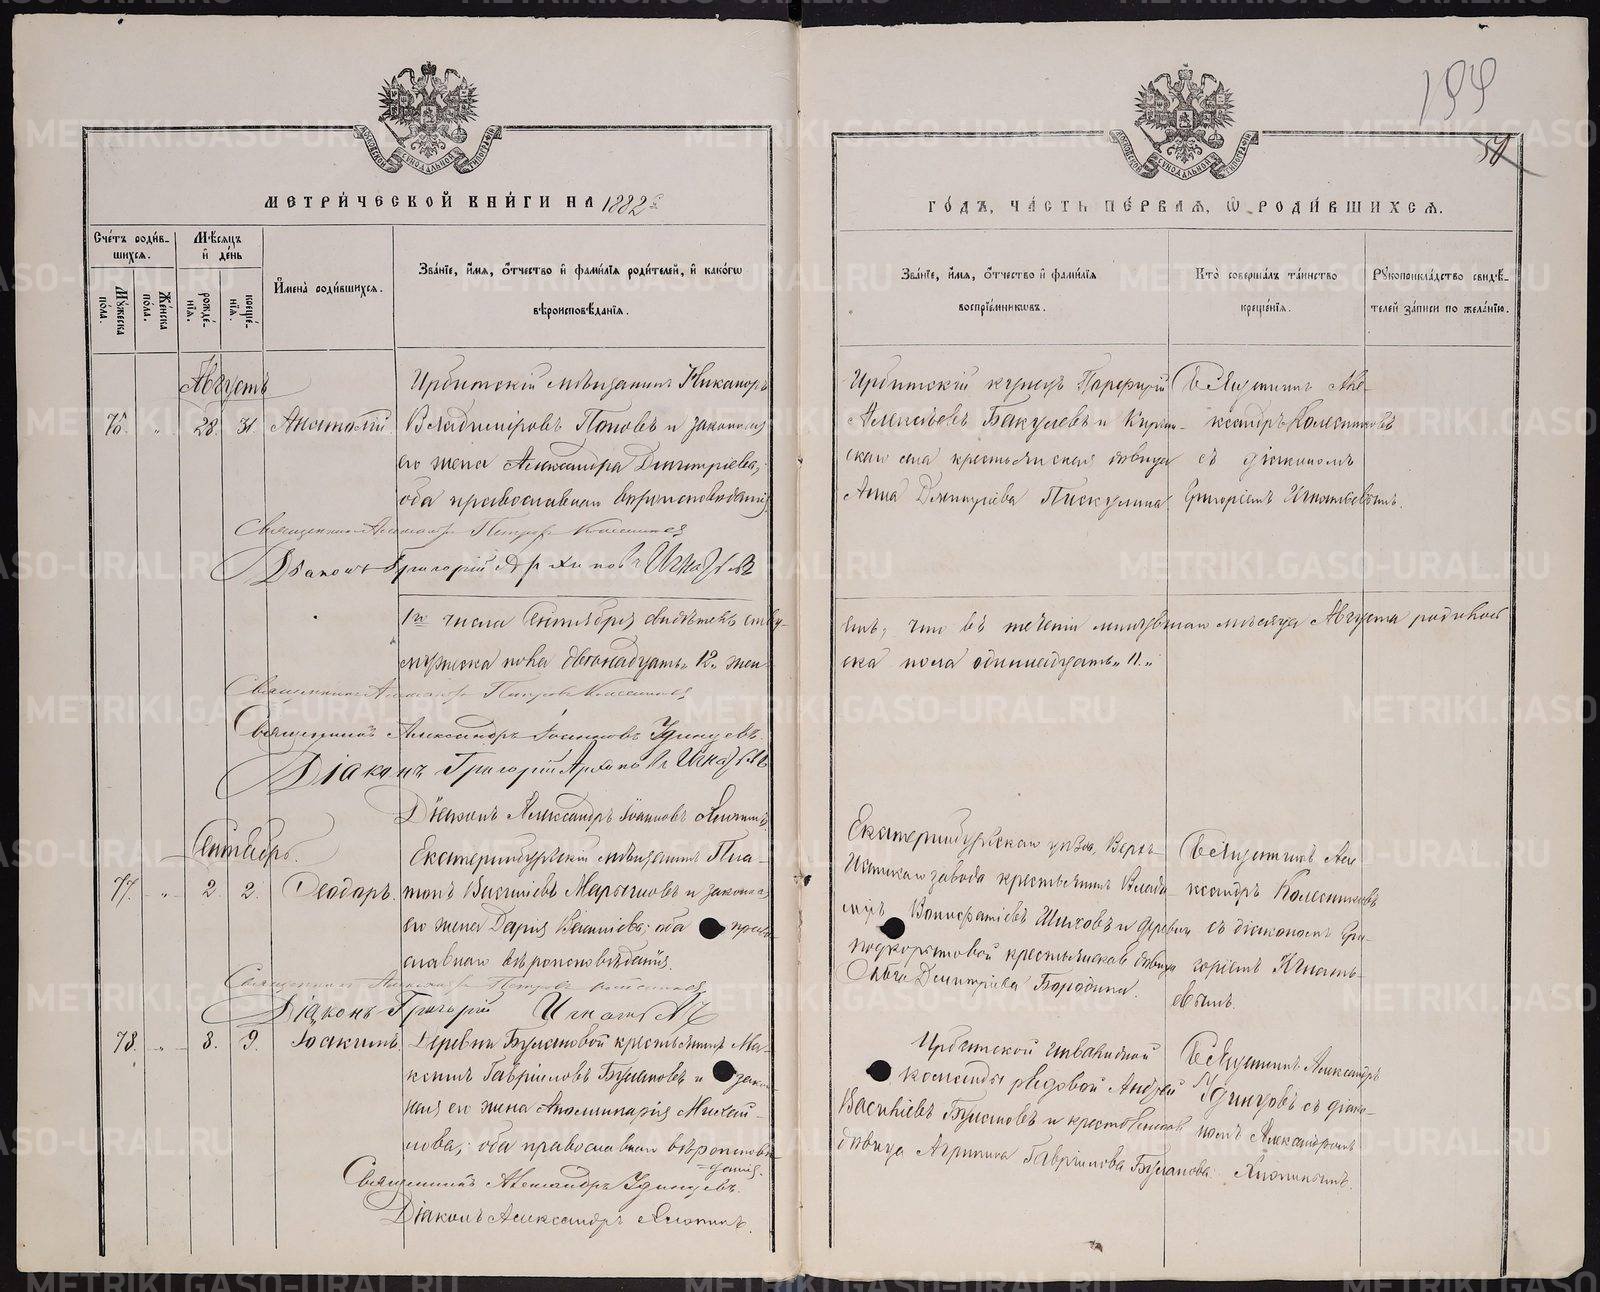 199
51
МОСКОВСКОЙ СѴНОДАЛЬНОЙ ТИПОГРАФІИ
МОСКОВСКОЙ СѴНОДАЛЬНОЙ ТИПОГРАФІИ
МЕТРИ́ЧЕСКОЙ КНИ́ГИ НА 1882 г.
ГО́ДЪ, ЧА́СТЬ ПЕ́РВАЯ, Ѡ РОДИ́ВШИХСЯ.
Сче́тъ роди́в-
шихся.
Му́жеска по́ла.
Же́нска по́ла.
Мѣ́сяцъ и де́нь
рожде́-
нія.
креще́-
нія.
И҆мена̀ роди́вшихся.
Зва́ніе, и҆́мя, ѻ҆́тчество и҆ фами́лія роди́телей, и҆ како́гѡ
вѣроисповѣ́данія.
Зва́ніе, и҆́мя, ѻ҆́тчество и҆ фами́лія
воспріе́мникѡвъ.
Кто̀ соверша́лъ та́инство
креще́нія.
Рꙋкоприкла́дство свидѣ́-
телей за́писи по жела́нію.
Августъ
76. „ 28. 31. Анатолій
Ирбитскій мѣщанинъ Никаноръ
Владиміровъ Поповъ и законная
его жена Александра Димитріева,
оба православнаго вѣроисповѣданія
Ирбитскій купецъ Порфирій
Алексѣевъ Бакулевъ и Кирги-
скаго села крестьянская дѣвица
Анна Димитріева Пискулина
Священникъ Але-
ксандръ Колесниковъ
съ діакономъ
Григоріемъ Игнатьевымъ.
Священникъ Александръ Петровъ Колесниковъ
Діаконъ Григорій Архиповъ Игнатьевъ
1го числа Сентября свидѣтельству-
емъ, что въ теченіи минувшаго мѣсяца Августа родилось
мужеска пола двенадцать „12„ жен-
ска пола одиннадцать „11„
Священникъ Александръ Петровъ Колесниковъ
Священникъ Александръ Іоанновъ Удинцевъ.
Діаконъ Григорій Архиповъ Игнатьевъ
Діаконъ Александръ Іоанновъ
Сентябрь.
77. „ 2. 2. Ѳеодоръ.
Екатеринбургскій мѣщанинъ Пла-
тонъ Василіевъ и законная
его жена Дарія Василіева; оба право-
славнаго вѣроисповѣданія.
Екатеринбургскаго уѣзда, Верхъ-
Исетскаго завода крестьянинъ Влади-
міръ Вонифатіевъ Шиховъ и деревни
Подкорытовой крестьянская дѣвица
Ольга Димитріева Бородина.
Священникъ Але-
ксандръ Колесниковъ
съ діакономъ Гри-
горіемъ Игнать-
евымъ.
Священникъ Александръ Петровъ Колесниковъ
Діаконъ Григорій Игнатьевъ
78. „ 8. 9. Іоакимъ.
Деревни Булановой крестьянинъ Ма-
ксимъ Гавріиловъ Булановъ и закон-
ная его жена Аполлинарія Михай-
лова; оба православнаго вѣроисповѣ-
данія.
Ирбитской инвалидной
команды рядовой Андрей
Василіевъ Булановъ и крестьянская
дѣвица Агрипина Гавріилова Буланова.
Священникъ Александръ
Удинцовъ съ діако-
номъ Александромъ
Священникъ Александръ Удинцевъ.
Діаконъ Александръ
METRIKI.GASO-URAL.RU